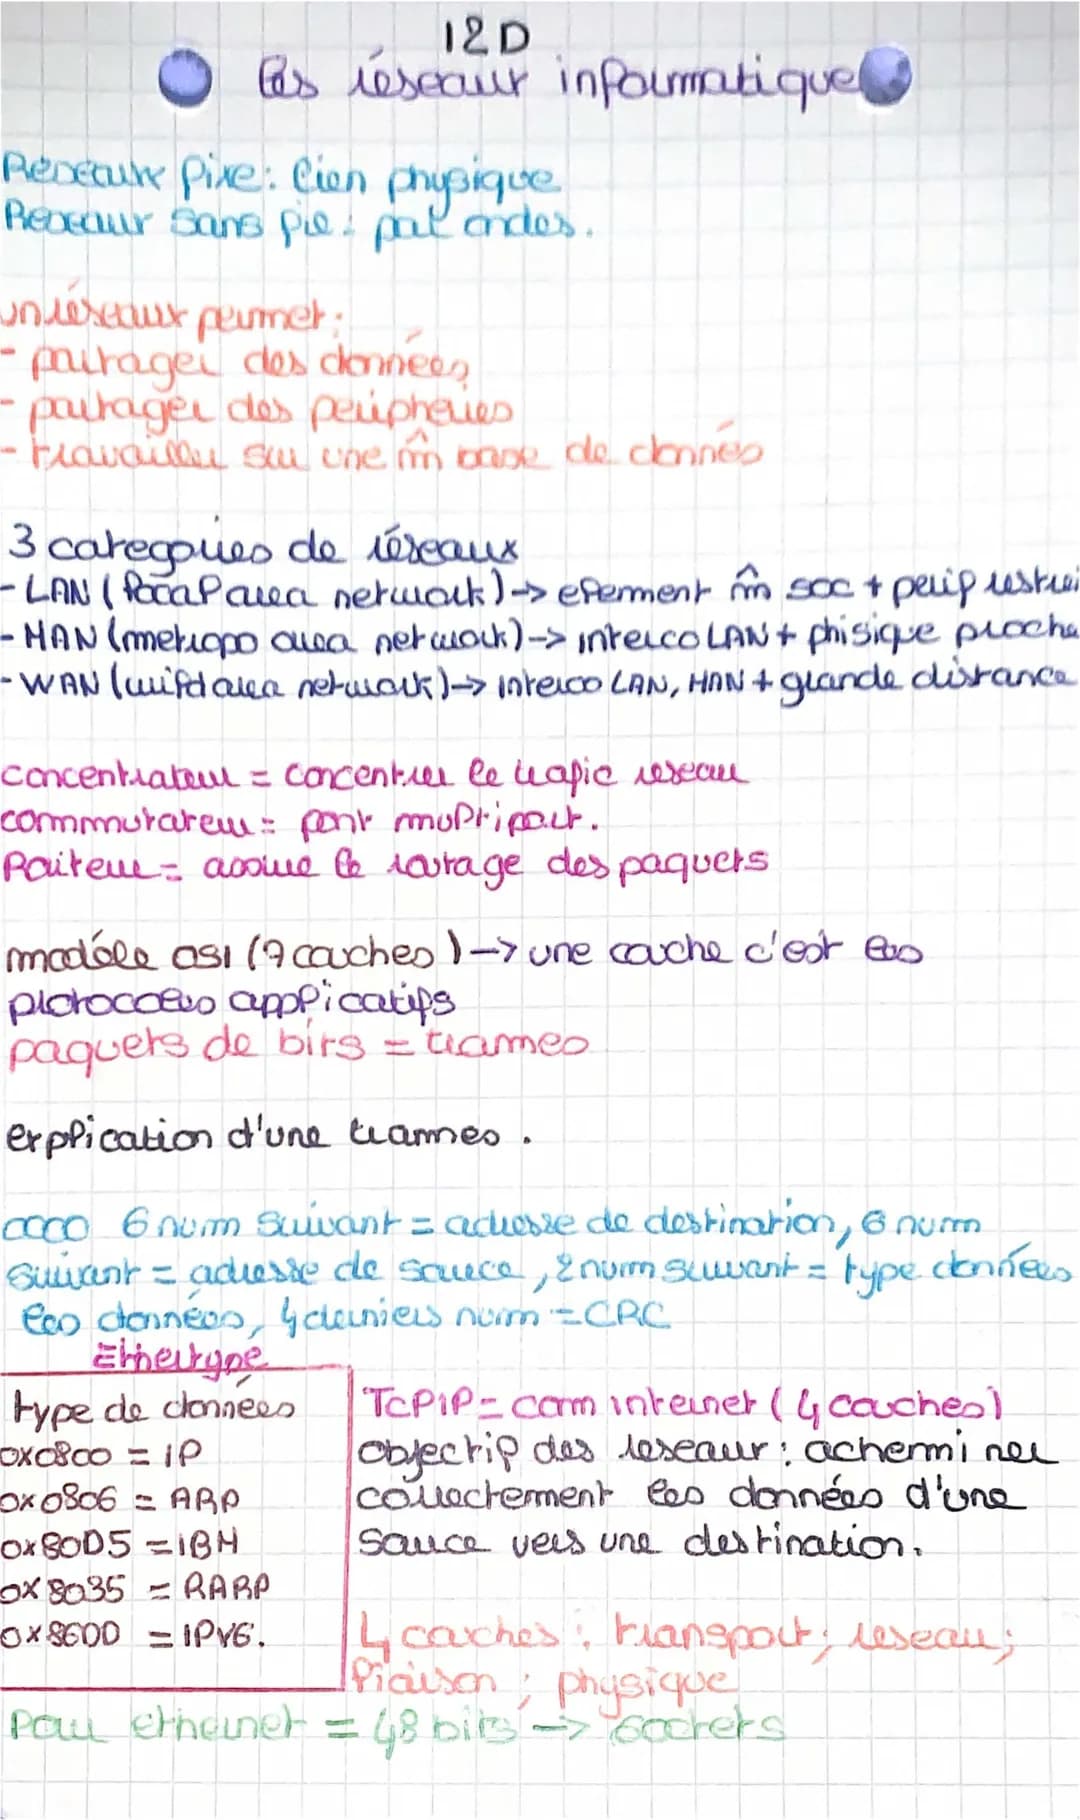 12D
Les réseaux informatique
Réseaux fixe : lien physique
Réseaux sans fil : par ondes.
un réseaux permet :
- partager des données
- partager des péripheries
- travailler sur une m̂ base de données
3 categories de réseaux
- LAN (local area network) -> eferment m̂ soc + perip restrei
- MAN (metropo area network) -> interco LAN + phisique proche
- WAN (wifd area network) -> interco LAN, MAN + grande distance
concentrateur = concentrer le trafic reseau
commmutateur = pont multiport.
Routeur = assure le routage des paquets
modéle OSI (7 couches) -> une couche c'est les
protocoles applicatifs
paquets de bits = trames
explication d'une trames .
6 num suivant = adresse de destination, 6 num
suivant = adresse de source, 2 num suivant = type données
les données, 4 derniers num = CRC
Ethertype
type de données
0x0800 = IP
0x0806 = ARP
0x80D5 = IBM
0x8035 = RARP
0x86DD = IPV6.
TCPIP = com internet (4 couches)
objectif des reseaux : achemi ner
correctement les données d'une
source vers une destination.
4 couches : transport ; reseau ;
liaison ; physique
Pour ethernet = 48 bits -> 6octets